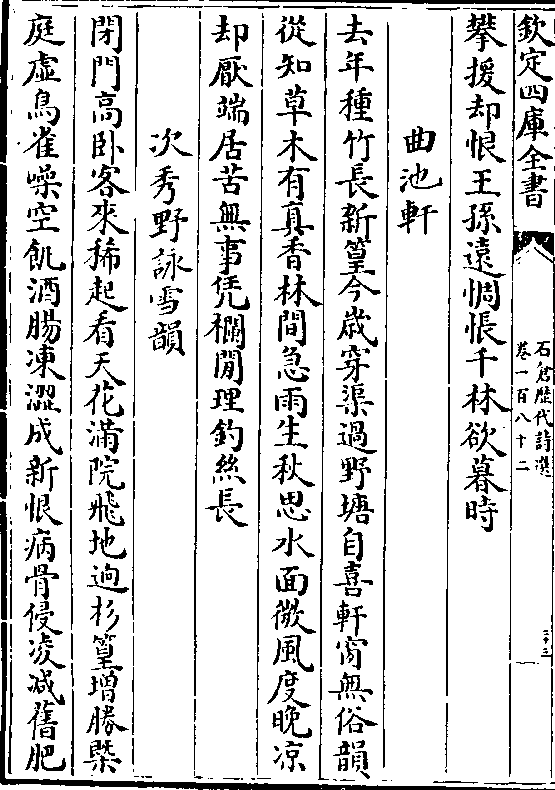 欽定四庫全書
石倉歷代詩選
卷一百八十二
攀援却恨王孫遠惆悵千林欲暮時
曲池軒
去年種竹長新篁今歲穿渠過野塘自喜軒窗無俗韻
從知草木有真香林間急雨生秋思水面微風度晚凉
却厭端居苦無事凭欄閒理釣絲長
次秀野詠雪韻
閉門高卧客來稀起看天花滿院飛地迥杉篁增勝槩
庭虛鳥雀噪空飢酒腸凍澀成新恨病骨侵凌减舊肥